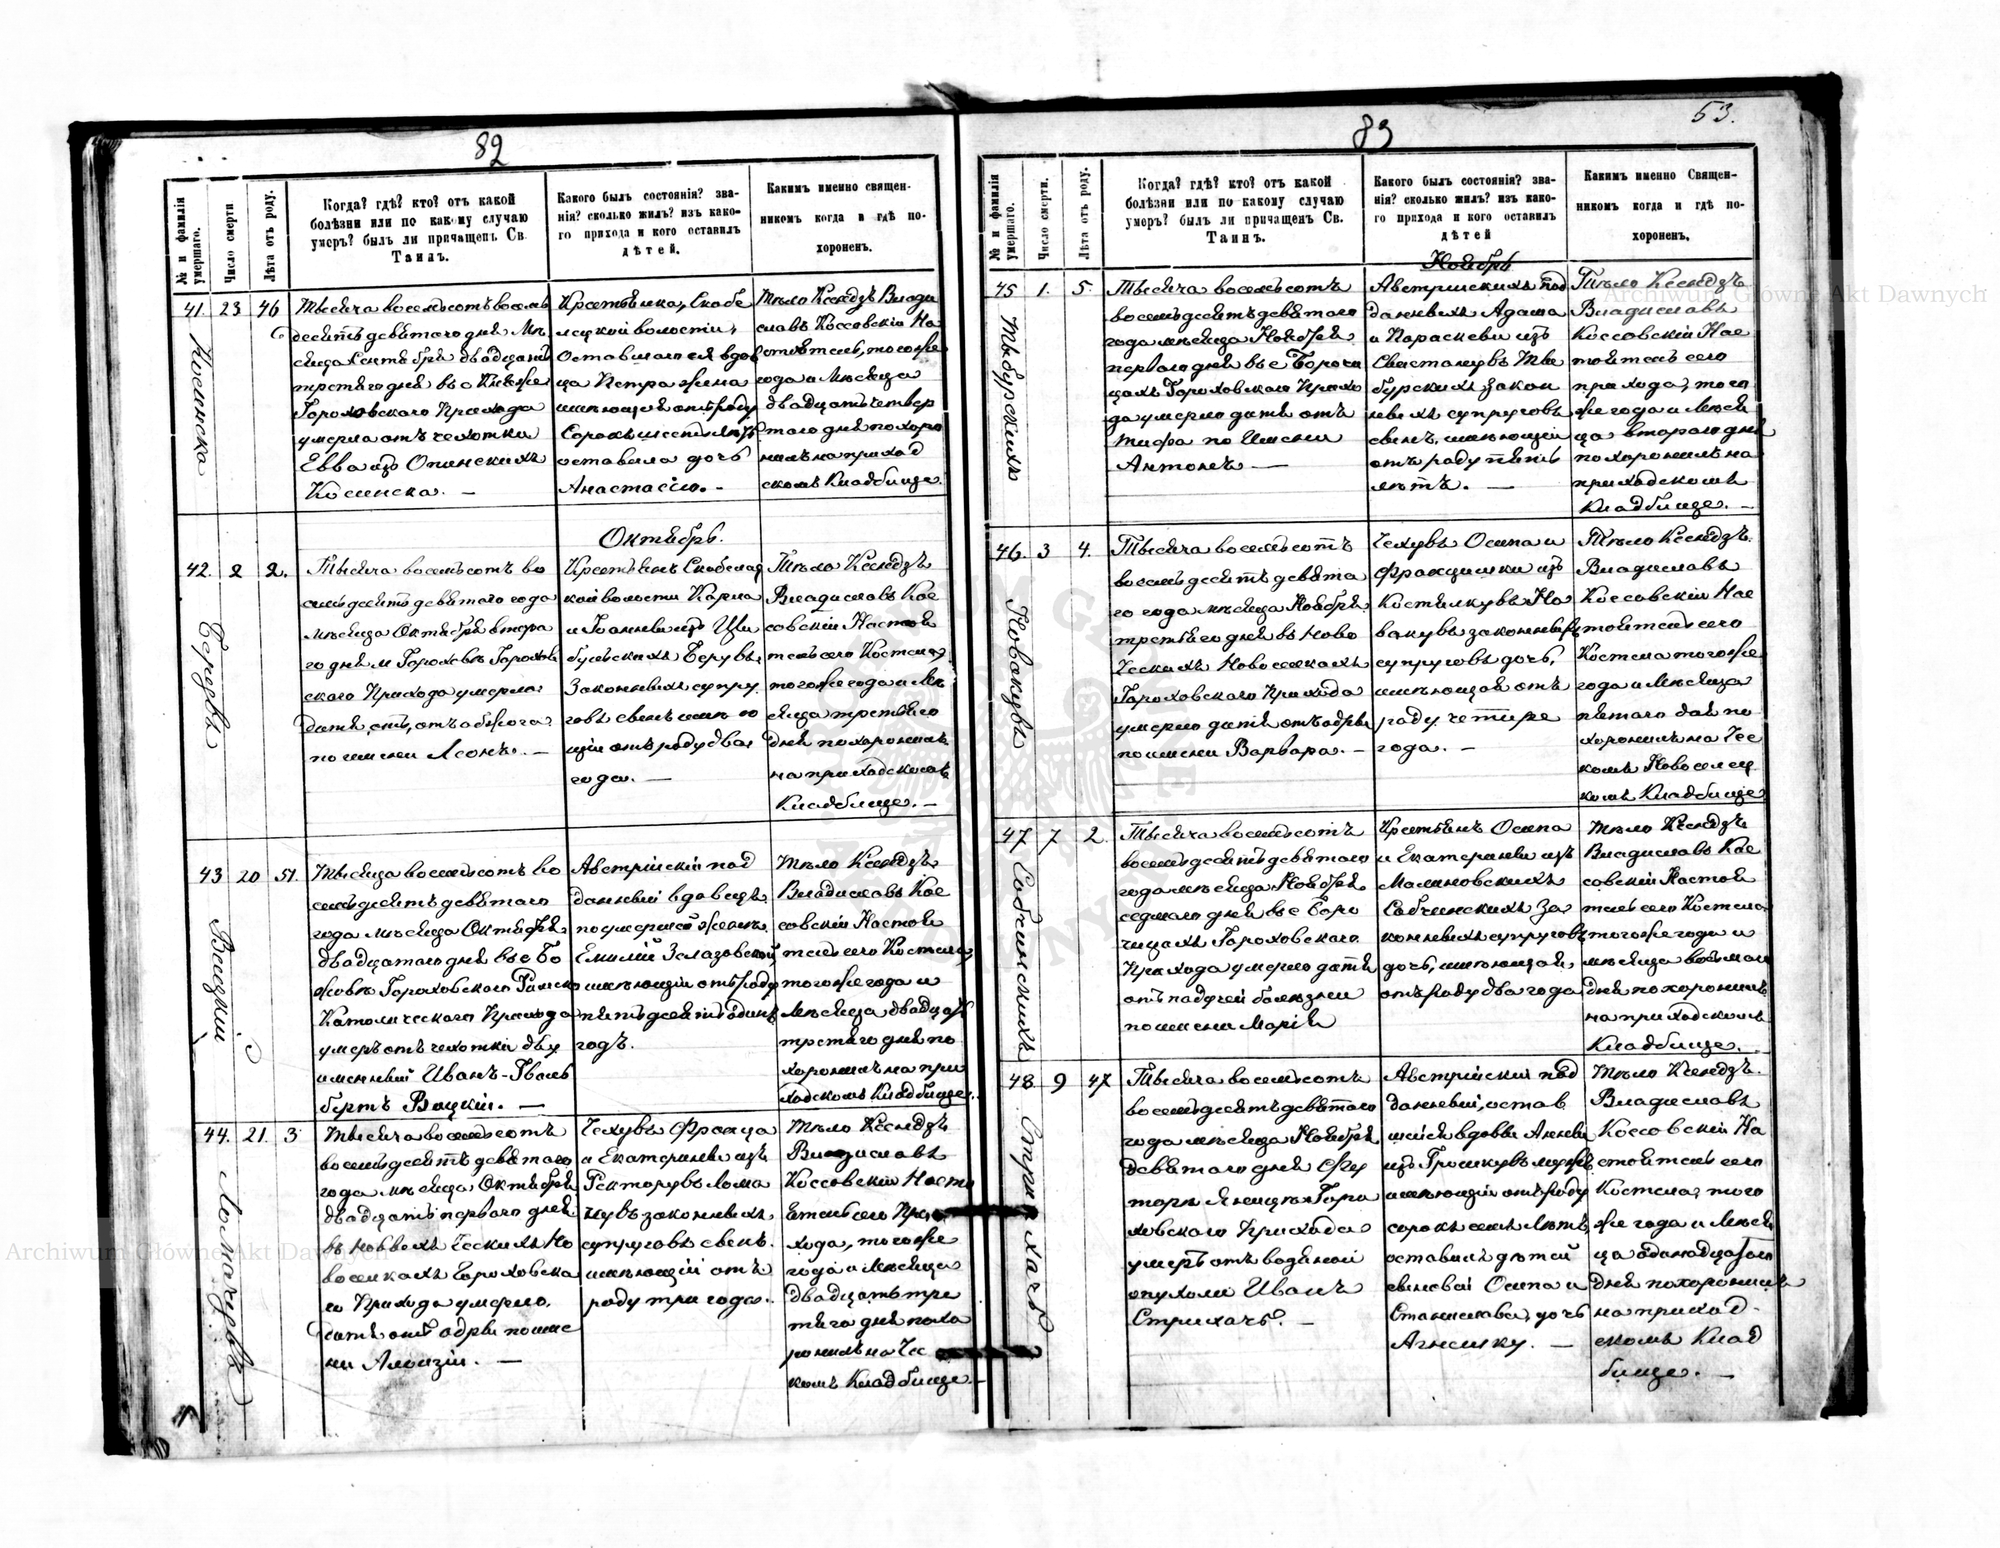 82
№ и фамилія умершаго.
Число смерти
Лѣта отъ роду.
Когда? гдѣ? кто? отъ какой
болѣзни или по какому случаю
умеръ? былъ ли причащенъ Св.
Таинъ.
Какого былъ состоянія? зва-
нія? сколько жилъ? изъ како-
го прихода и кого оставилъ
дѣтей.
Какимъ именно священ-
никомъ когда и гдѣ по-
хороненъ.
41. 23 46
Косинска
Тысяча восемьсотъ восемь
десятъ девятого дня Мѣ
сяца Сентября двадцать
третяго дня въ с Княже
Гороховского Прихода
умерла отъ чехотки
Евва изъ Опинскихъ
Косинска. —
Крестьянка, Скобе
лецкой волости,
Оставшаго ея вдов
ца Петра жена
имѣющая отъ роду
Сорокъ шесть лѣтъ
оставила дочь
Анастасію. —
Тѣло Ксендзъ Влади
славъ Коссовскій На
стоятель, того же
года и Мѣсяца
двадцать четвер
того дня похоро
нилъ на приход
скомъ Кладбище.
Октябрь.
42. 2 2.
Берувъ
Тысяча восемьсотъ во
семьдесятъ девятого года
Мѣсяца Октября втора
го дня м Гороховѣ Горохов
ского Прихода умерло
дитя, отъ адры
по имени Леонъ. —
Крестьянъ Скобелец
кой волости Карла
и Іоанны изъ Цы
бульскихъ Берувъ,
Законныхъ супру
говъ сынъ имѣю
щій отъ роду два
года. —
Тѣло Ксендзъ
Владиславъ Кос
совскій Настоя
тель сего Костела
того же года и Мѣ
сяца третьяго
дня похоронилъ
на приходскомъ
Кладбище. —
43 20 51.
Вацкій
Тысяца восемьсотъ во
семьдесятъ девятого
года Мѣсяца Октября
двадцатого дня въ с Бо
жовѣ Гороховского Римско
Католического Прихода
умеръ отъ чехотки дву
именный Иванъ-Гваль
бертъ Вацкій. —
Австрійскій под
данный вдовецъ
по умершей женѣ
Емиліи Зелазовской
имѣющій отъ роду
пятьдесятъ одинъ
годъ.
Тѣло Ксендзъ
Владиславъ Кос
совскій Настоя
тель сего Костела
того же года и
Мѣсяца двадцать
третяго дня по
хоронилъ на при
ходскомъ Кладбище.
44. 21. 3
Тысяча восемьсотъ
восемьдесятъ девятого
года Мѣсяца Октября
двадцать первого дня
въ новыхъ Ческихъ Но
воселкахъ Гороховска
го Прихода умерло
дитя отъ адры по име
ни Алоизій. —
Чехувъ Франца
и Екатерины изъ
Ректорувъ Лома
чувъ законныхъ
супруговъ сынъ.
имѣющій отъ
роду три года.
Тѣло Ксендзъ
Владиславъ
Коссовскій Насто
ятель сего При
хода, того же
года и Мѣсяца
двадцать тре
тяго дня похо
ронилъ на Чес
комъ Кладбище. —
83
53.
№ и фамилія умершаго.
Число смерти.
Лѣта отъ роду.
Когда? гдѣ? кто? отъ какой
болѣзни или по какому случаю
умеръ? былъ ли причащенъ Св.
Таинъ.
Какого былъ состоянія? зва-
нія? сколько жилъ? изъ како-
го прихода и кого оставилъ
дѣтей
Какимъ именно Священ-
никомъ когда и гдѣ по-
хороненъ.
Ноябрь
45 1. 5.
Тысяча восемьсотъ
восемьдесятъ девятого
года мѣсяца Ноября
первого дня въ с Бороч
цахъ Гороховского Прихо
да умерло дитя отъ
тифа по Имени
Антонъ —
Австрійскихъ под
данныхъ Адама
и Параскевы изъ
закон
ныхъ супруговъ
сынъ, имѣющій
отъ роду пять
лѣтъ. —
Тѣло Ксендзъ
Владиславъ
Коссовскій Нас
тоятель сего
прихода, того
же года и Мѣся
ца второго дня
похоронилъ на
приходскомъ
Кладбище. —
46. 3 4.
Новакувъ
Тысяча восемьсотъ
восемьдесятъ девята
го года мѣсяца Ноября
третьяго дня въ Ново
Ческихъ Новоселкахъ
Гороховского Прихода
умерло дитя отъ адры
по имени Варвара. —
Чехувъ Осипа и
Францишки изъ
Костялкувъ Но
вакувъ законныхъ
супруговъ дочь,
имѣющая отъ
роду четыре
года. —
Тѣло Ксендзъ
Владиславъ
Коссовскій Нас
тоятель сего
Костела того же
года и Мѣсяца
пятого дня по
хоронилъ на Чес
комъ Новоселец
комъ Кладбище
47 7 2.
Собчинскихъ
Тысяча восемьсотъ
восемьдесятъ девятого
года мѣсяца Ноября
седмого дня въ с Боро
чицахъ Гороховского
Прихода умерло дитя
отъ падучей болѣзни
по имени Марія
Крестьянъ Осипа
и Екатерины изъ
Малиновскихъ
Собчинскихъ За
конныхъ супруговъ
дочь, имѣющая,
отъ роду два года
Тѣло Ксендзъ
Владиславъ Кос
совскій Настоя
тель сего Костела
того же года и
мѣсяца восьмого
дня похоронилъ
на приходскомъ
Кладбище. —
48. 9 47
Стрихачъ
Тысяча восемьсотъ
восемьдесятъ девятого
года мѣсяца Ноября
девятого дня
Горо
ховского Прихода
умеръ отъ водяной
опухоли Иванъ
Стрихачъ. —
Австрійскій под
данный, остав
шейся вдовы Анны
изъ мужъ
имѣющій отъ роду
сорокъ семь лѣтъ,
оставилъ дѣтей
сыновей Осипа и
Станислава, дочь
Агнешку. —
Тѣло Ксендзъ
Владиславъ
Коссовскій На
стоятель сего
Костела, того
же года и Мѣся
ца одинадцатого
дня похоронилъ
на приход-
скомъ Клад
бище. —
Archiwum Główne Akt Dawnych
Archiwum Główne Akt Dawnych